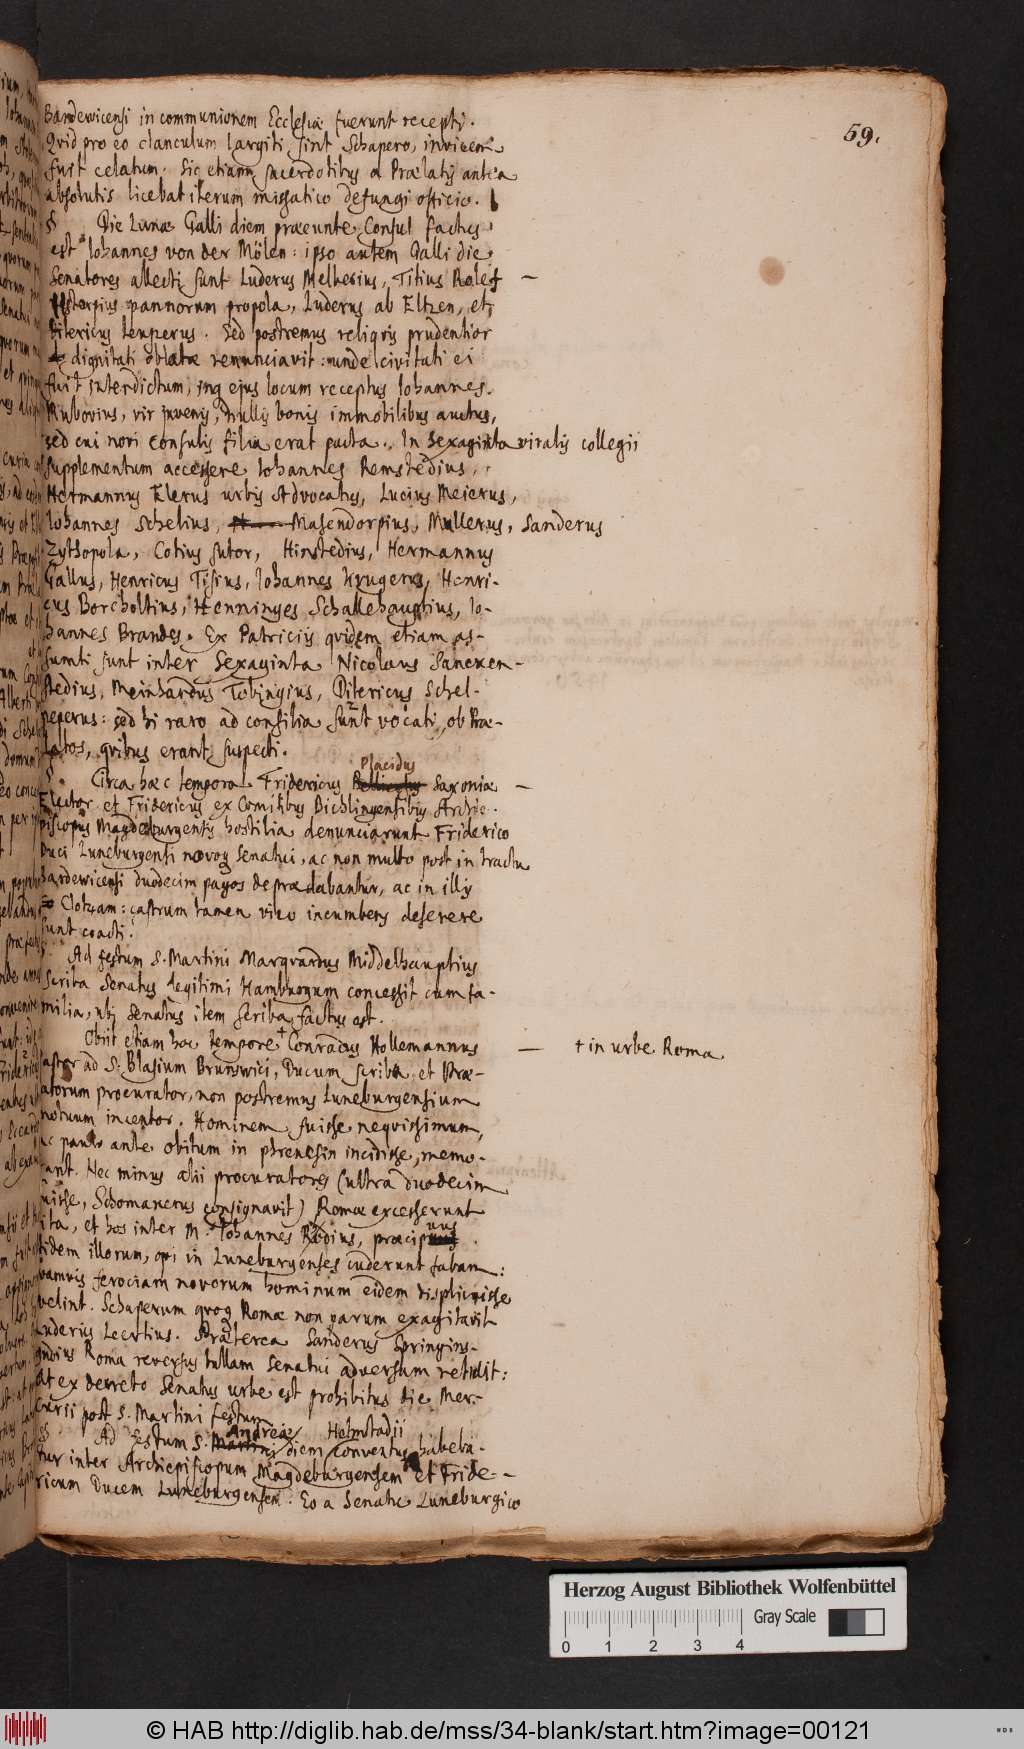 59.
Bardewicensi in communionem Ecclesiæ fuerunt recepti.
Qvid pro eo clanculum largiti sint Schapero, invicem
fuit celatum. Sic etiam sacerdotibus a Prælatis antea
absolutis licebat iterum missatico defungi officio.
§ Die Lunæ Galli diem præeunte Consul factus
est Iohannes von der Mölen: ipso autem Galli die
Senatores allecti sunt Luderus Melherius, Titius Rolef
pannorum propola, Luderus ab Eltzen, et
Ditericus Lenperus. Sed postremus reliqvis prudentior
dignitati oblatæ renunciavit: unde civitati ei
fuit interdictum, inq ejus locum receptus Iohannes
Rubovius, vir juvenis, nullis bonis immobilibus auctus,
sed cui novi Consulis filia erat pacta. In Sexaginta viralis collegii
supplementum accessere Iohannes Remstedius,
Hermannus Elerus urbis Advocatus, Lucius Meierus,
Iohannes Schelius, Masendorpius, Mullerus, Sanderus
Zythopola, Cotius sutor, Hinstedius, Hermannus
Gallus, Henricus Tisius, Iohannes Krugerus, Henri-
cus Borcholtius, Henninges Schallehauptius, Io-
hannes Brandes. Ex Patriciis qvidem etiam as-
sumti sunt inter Sexaginta Nicolaus Sancken-
stedius, Meinhardus Tobingius, Ditericus Schel-
peperus: sed hi raro ad consilia sunt vocati, ob Præ-
latos, qvibus erant suspecti.
§. Circa hæc tempora Fridericus Placidus Saxoniæ
Elector et Fridericus ex Comitibus Bichlingensibus Archie-
piscopus Magdeburgensis hostilia denunciarunt Friderico
Duci Luneburgensi novoq Senatui, ac non multo post in tractu
Bardewicensi duodecim pagos deprædabantur, ac in illis
Clotzam: castrum tamen vico incumbens deserere
sunt coacti.
§. Ad festum S. Martini Marqvardus Middelhauptius
Scriba Senatus legitimi Hamburgum concessit cum fa-
milia, ubi Senatus item scriba factus est.
Obiit etiam hoc tempore + Conradus Hollemannus
Pastor ad S. Blasium Brunswici, Ducum scriba et Præ-
latorum procurator, non postremus Luneburgensium
motuum incentor. Hominem fuisse neqvissimum,
ac paulo ante obitum in phrenesin incidisse, memo-
rant. Nec minus alii procuratores (ultra duodecim
fuisse, Schomakerus consignavit) Romæ excesserunt
vita, et hos inter M. Iohannes Rodius, præcipuus
itidem illorum, qvi in Luneburgenses cuderunt fabam:
qvamvis ferociam novorum hominum eidem displicuisse
velint. Schaperum qvoq Romæ non parum exagitavit
Luderius Leertius. Præterea Sanderus Springins-
gudius Roma reversus bullam Senatui adversam retulit:
at ex decreto Senatus urbe est prohibitus die Mer-
curii post S. Martini festum.
§§ Ad festum S. Andreæ diem Conventus Helmstadii habeba-
tur inter Archiepiscopum Magdeburgensem et Fride-
ricum Ducem Luneburgensem. Eo a Senatu Luneburgico
+ in urbe Roma
Herzog August Bibliothek Wolfenbüttel
Gray Scale
0 1 2 3 4
© HAB http://diglib.hab.de/mss/34-blank/start.htm?image=00121